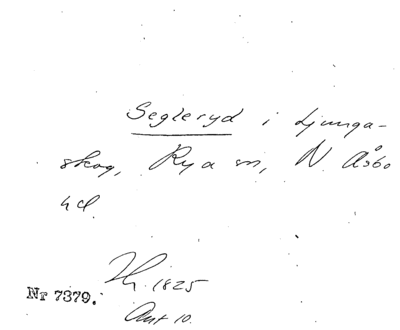 Segleryd i Ljunga-
skog, Rya sn, N. Åsbo
hd.
Nr 7379.
1825
Ant 10.